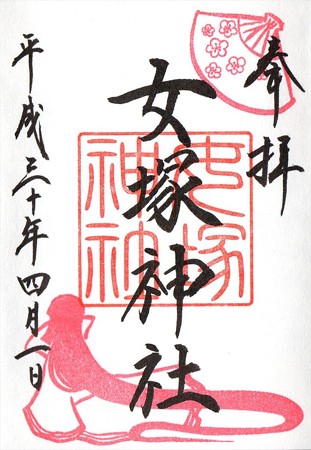 奉拝
女塚神社
女塚神社
平成三十年四月一日